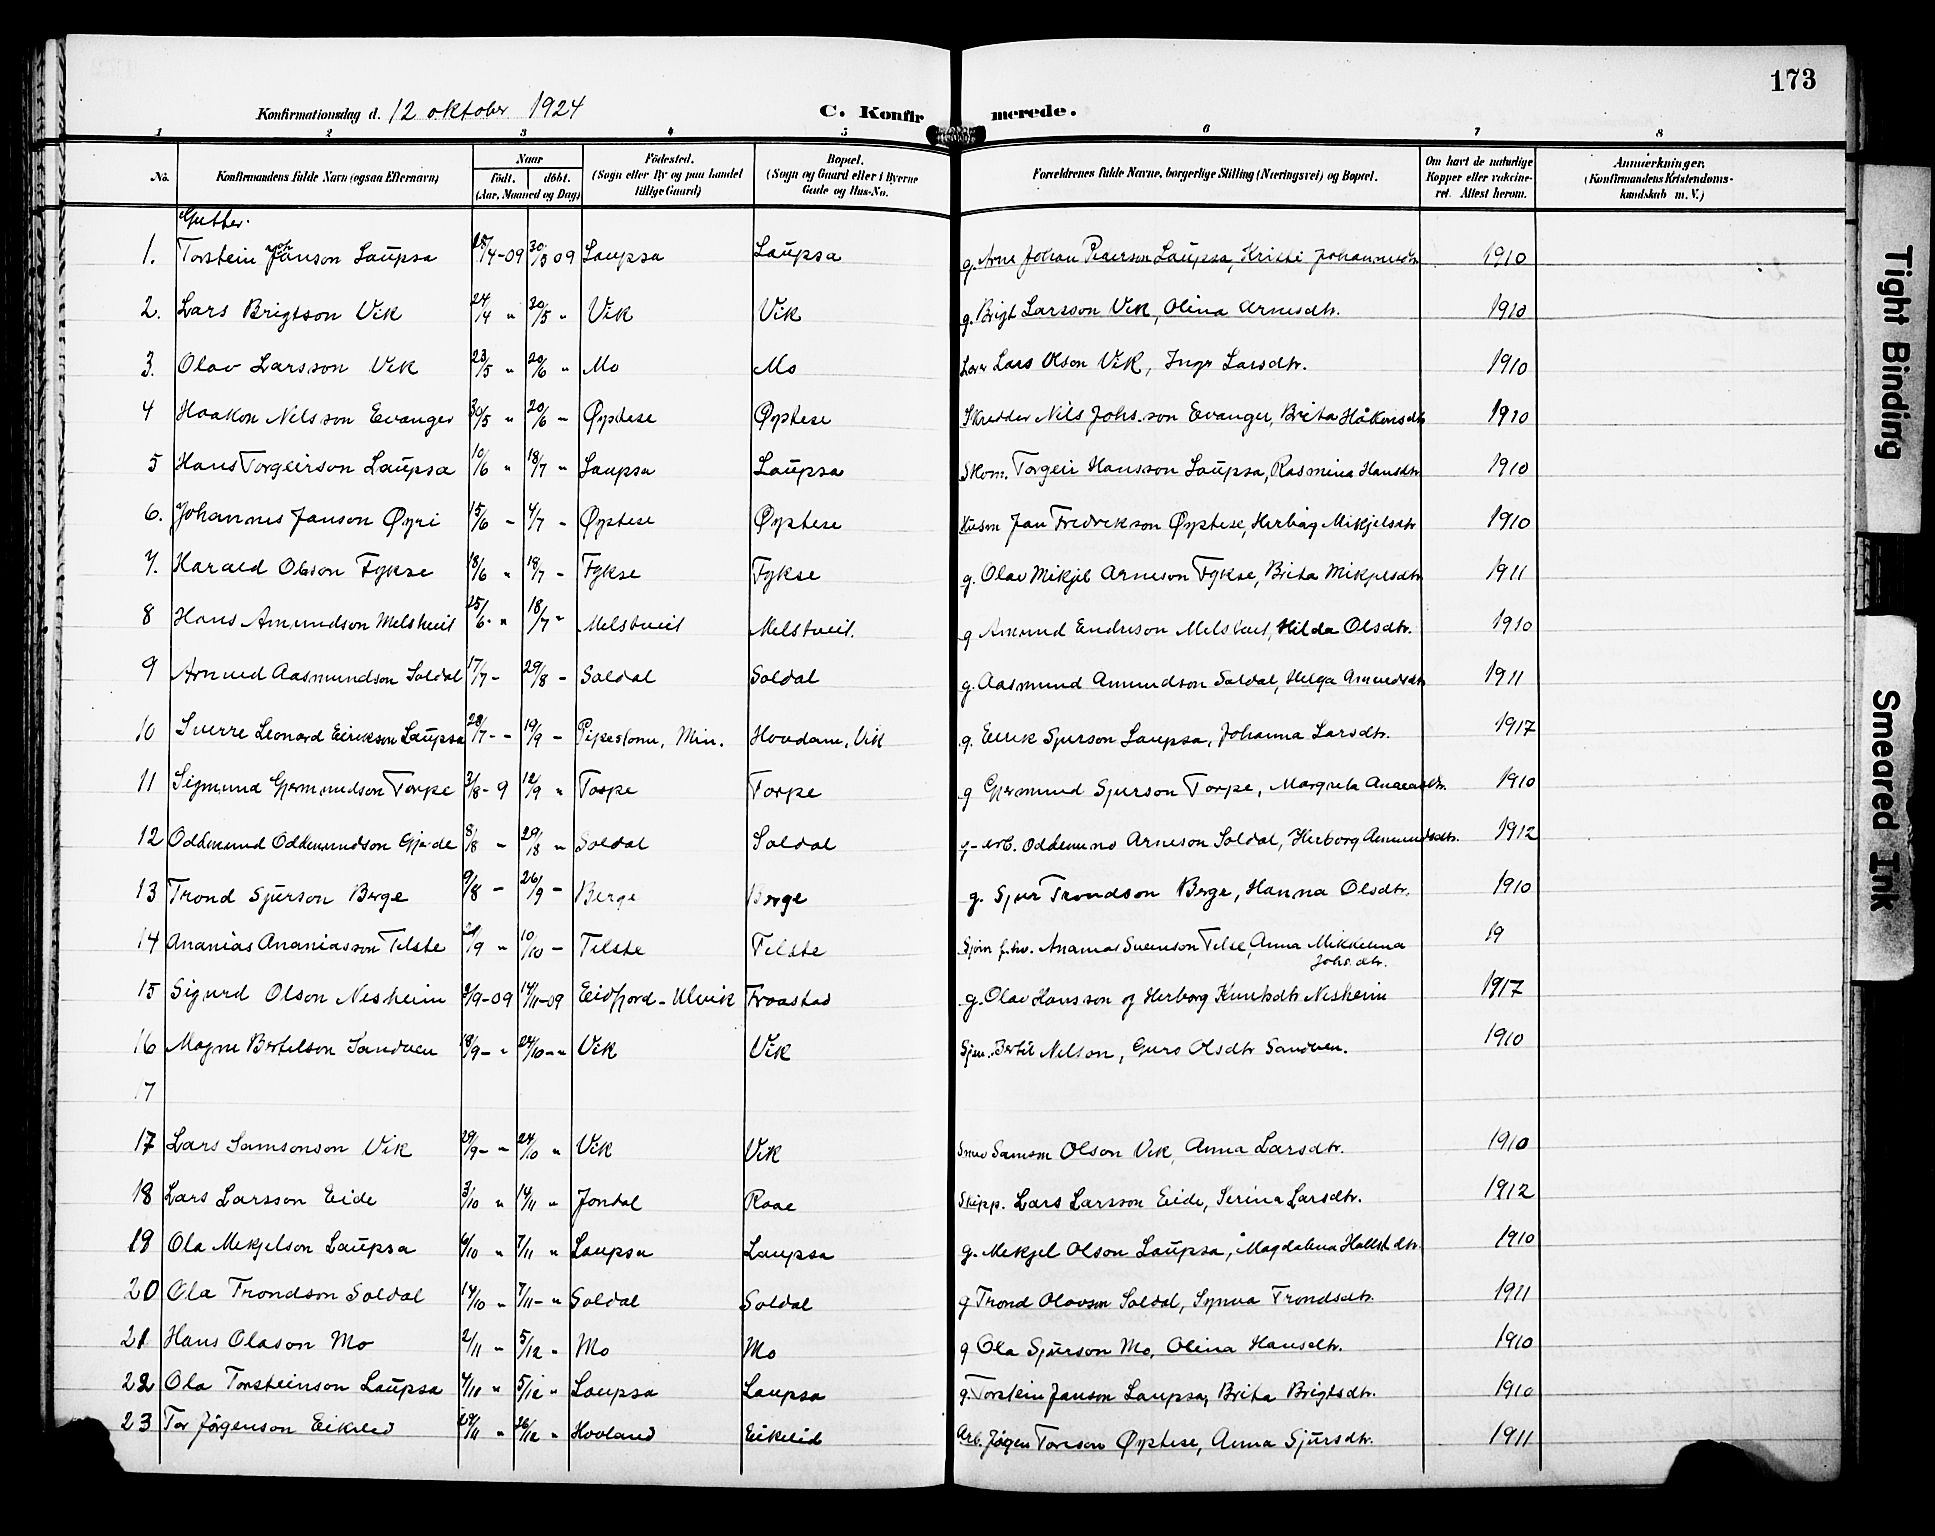 173
Konfirmationsdag d. 12 oktober 1924 C. Konfirmerede.
1 2 3 4 5 6 7 8
No. Konfirmandens fulde Navn (ogsaa Efternavn) Naar født. døbt. (Aar, Maaned og Dag) Fødested. (Sogn eller By og paa Landet tillige Gaard) Bopæl. (Sogn og Gaard eller i Byerne Gade og Hus-No. Forældrenes fulde Navne, borgerlige Stilling (Næringsvei) og Bopæl. Om havt de naturlige Kopper eller vaccineret. Attest herom. Anmærkninger. (Konfirmandens Kristendomskundskab m. V.)
Gutter.
1. Torstein Johanson Laupsa 25/4-09 30/5 09 Laupsa Laupsa g. Arne Johan Pederson Laupsa, Kristi Johannesdtr 1910
2. Lars Brigtson Vik 24/4 " 30/5 " Vik Vik g. Brigt Larsson Vik, Olina Arnesdtr. 1910
3. Olav Larsson Vik 23/5 " 20/6 " Mo Mo Lars Olson Vik, Inga Larsdtr. 1910
4 Haakon Nilsson Evanger 30/5 " 20/6 - Øystese Øystese Skredder Nils Johs.son Evanger, Brita Håkonsdtr 1910
5 Hans Torgeirson Laupsa 10/6 " 18/7 " Laupsa Laupsa Skom. Torgeir Hansson Laupsa, Rasmina Hansdtr 1910
6. Johannes Janson Øyri 15/6 - 4/7 - Øystese Øystese Husm Jan Fredrikson Øystese, Herbåg Mikjelsdtr 1910
7. Harald Olson Fykse 18/6 " 18/7 - Fykse Fykse g. Olav Mikjel Arneson Fykse, Brita Mikjelsdtr 1911
8 Hans Amundson Melstveit 25/6 - " 18/7 " Melstveit Melstveit. g Amund Endreson Melstveit, Hilda Olsdtr. 1910
9 Amund Aasmundson Soldal 17/7 - 29/8 - Soldal Soldal g. Aasmund Amundson Soldal, Helga Amundsdtr 1911
10 Sverre Leonard Eirikson Laupsa 28/7 - - 19/9 - Pipestone, Min. Hovdane, Vik g. Eirik Sjurson Laupsa, Johanna Larsdtr. 1917
11 Sigmund Gjermundson Torpe 3/8 - 9 12/9 " Torpe Torpe g Gjermund Sjurson Torpe, Margreta 1910
12 Oddmund Oddmundson Gjerde 8/8 - 29/8 " Soldal Soldal g- arb. Oddmund Arneson Soldal, Herborg Aamundsdtr. 1912
13 Trond Sjurson Berge 9/8 - 26/9 - Berge Berge g. Sjur Trondson Berge, Hanna Olsdtr. 1910
14 Ananias Ananiasson Telste /9 " 10/10 - Telste Telste Sjøm f.hv. Ananias Svenson Telse, Anna Mikkelina 19
Johs.dtr.
15 Sigurd Olson Nesheim 2/9-09 14/11-09 Eidfjord - Ulvik Fraastad g. Olav Hansson og Herborg Knutsdtr Nesheim 1917
16 Magne Bertelson Sandven 18/9 - " 24/10 - " Vik Vik Bertil Nelson, Guro Olsdtr Sandven. 1910
17
17 Lars Samsonson Vik 29/9 - " 24/10 " Vik Vik Samson Olson Vik, Anna Larsdtr. 1910
18 Lars Larsson Eide 3/10 " 14/11 " Jondal Raae Skipp. Lars Larsson Eide, Serina Larsdtr. 1912
19 Ola Mekjelson Laupsa 6/10 " 7/11 " Laupsa Laupsa g. Mekjel Olson Laupsa, Magdalena Hallstdtr. 1910
20 Ola Trondson Soldal 14/10 " 7/11 - " Soldal Soldal g Trond Olavson Soldal, Synva Trondsdtr. 1911
21 Hans Olason Mo 2/11 " 5/12 " Mo Mo g Ola Sjurson Mo, Olina Hansdtr. 1910
22 Ola Torsteinson Laupsa 4/11 " 5/12 " Laupsa Laupsa g. Torstein Janson Laupsa, Brita Brigtsdtr. 1910
23 Tor Jørgenson Eikeled 24/11 " 26/12 " Hovland Eikeled Arb. Jøgen Toreson Øystese, Anna Sjursdtr. 1911
Tight Binding
Smeared Ink